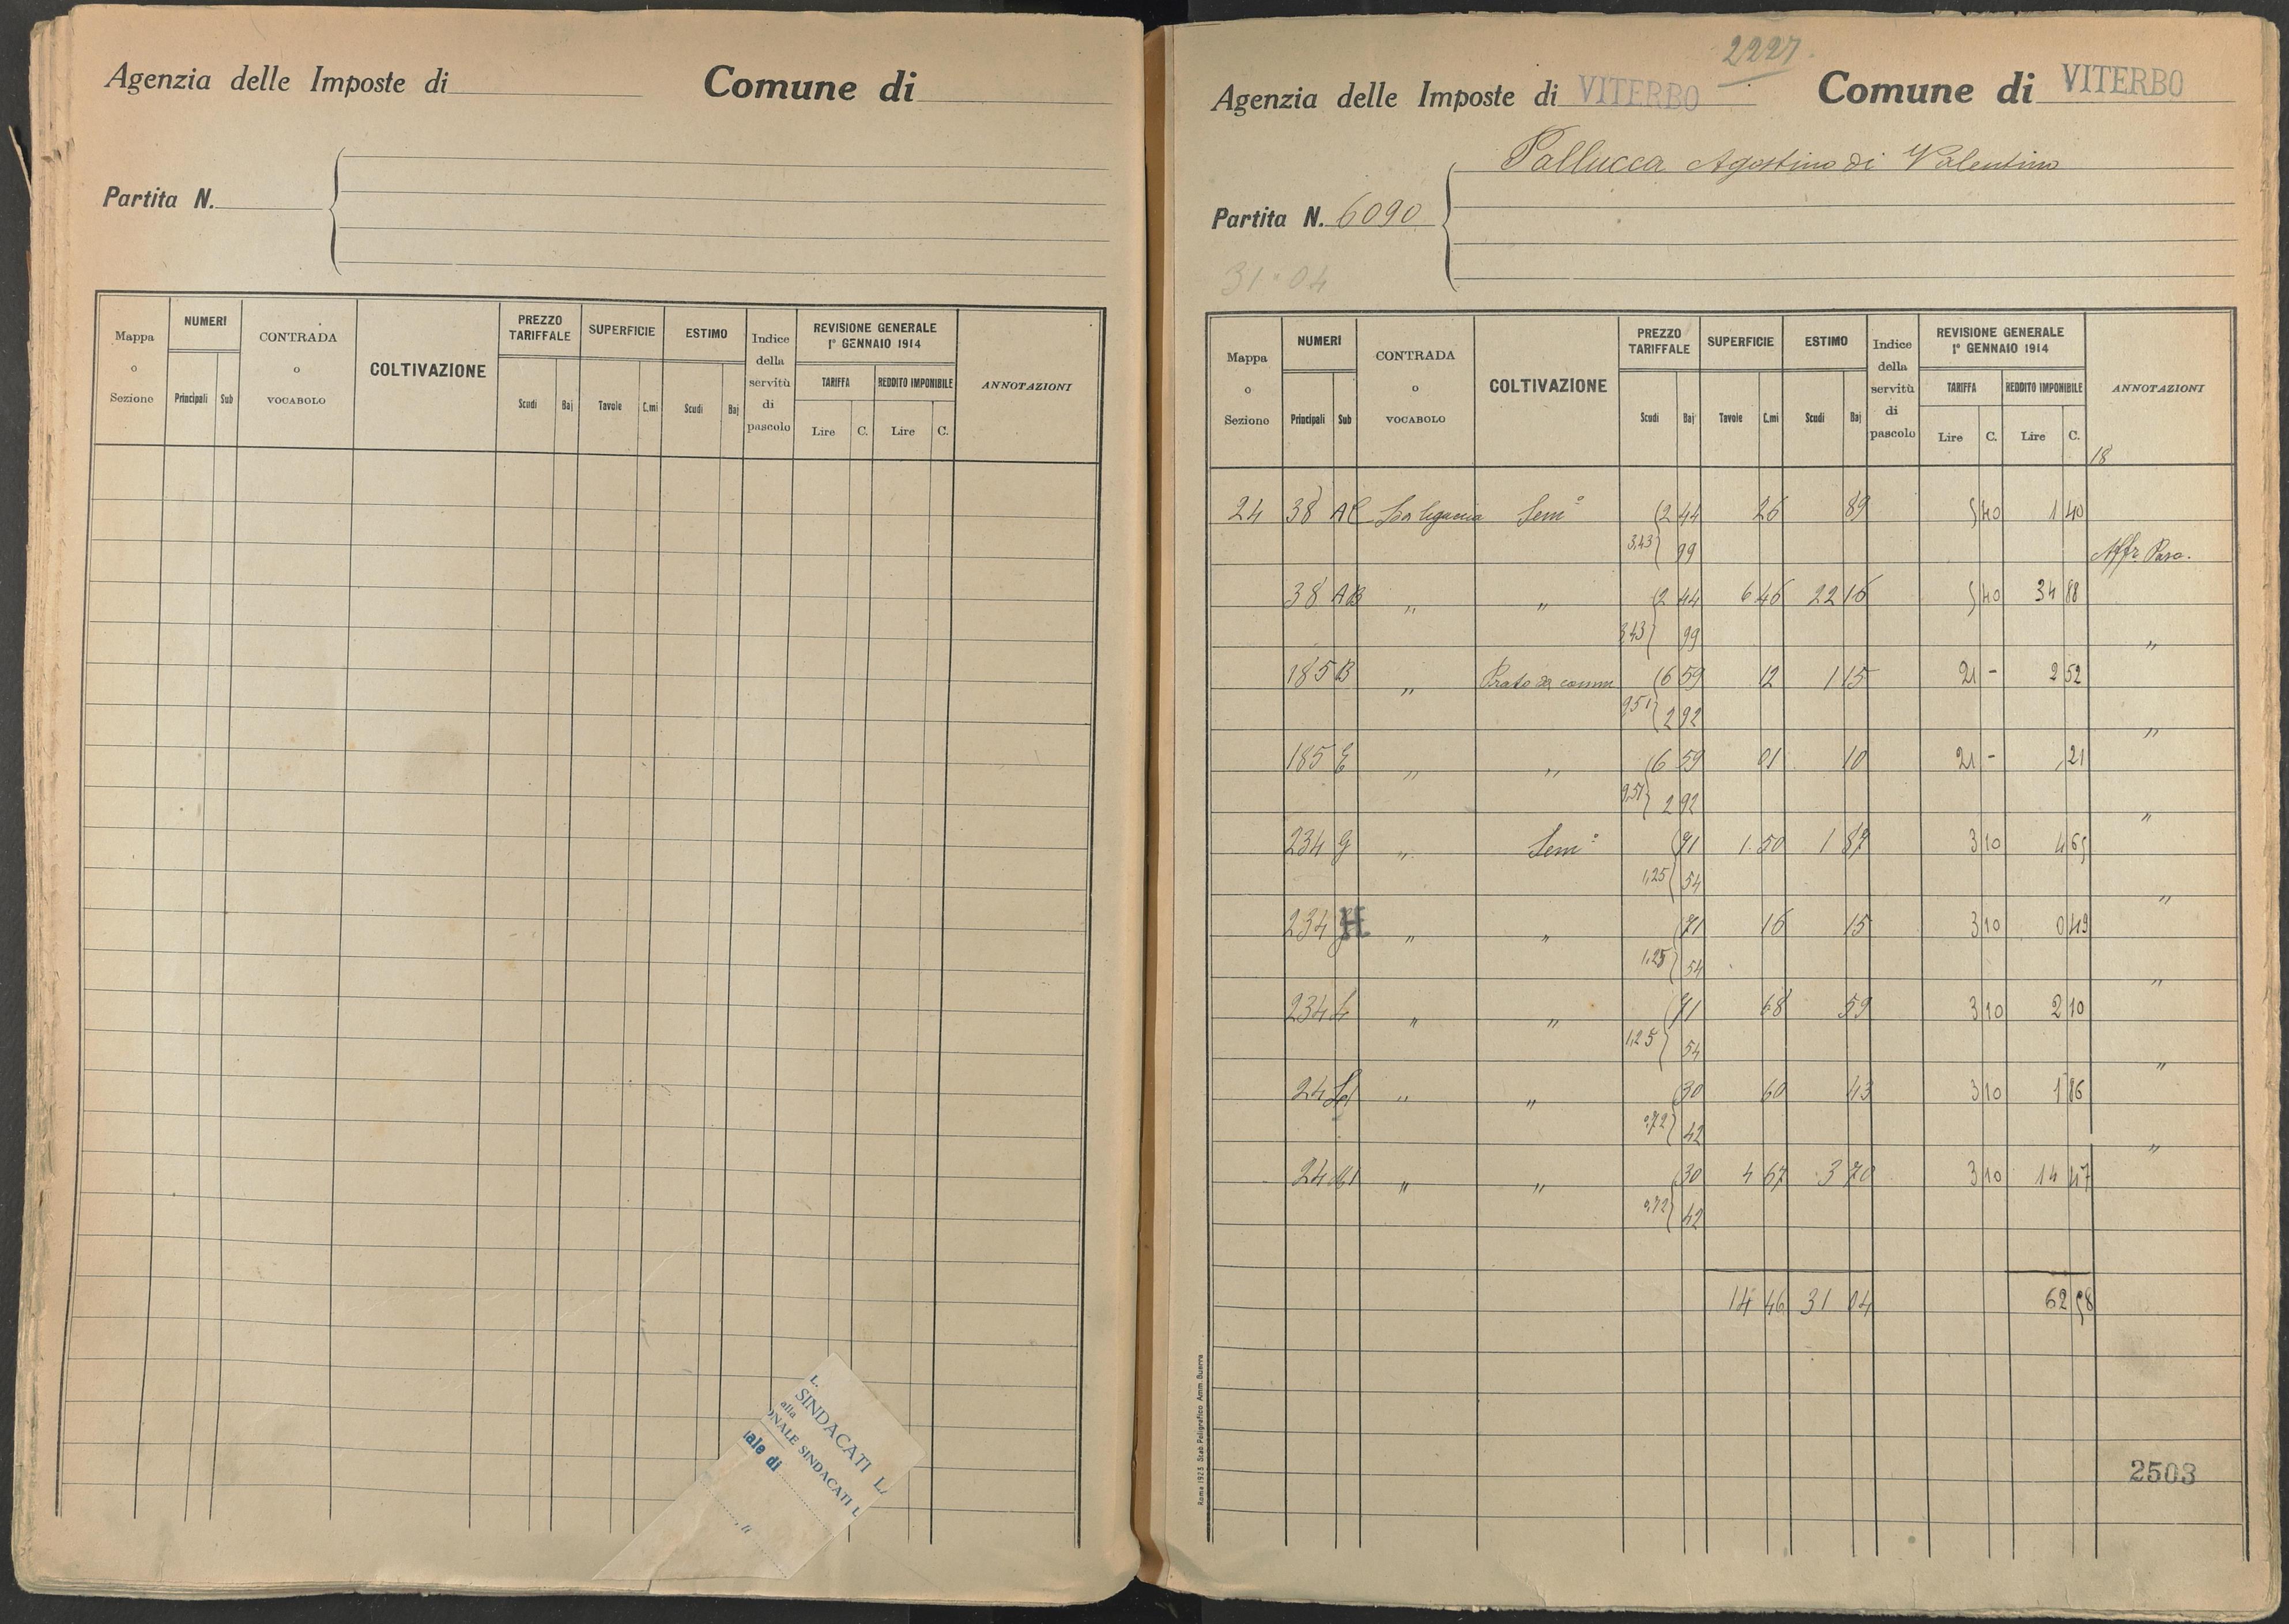 Agenzia delle Imposte di
Comune di
Partita N.
Mappa o Sezione
NUMERI
Principali
Sub
CONTRADA o VOCABOLO
COLTIVAZIONE
PREZZO TARIFFALE
Scudi
Baj
SUPERFICIE
Tavole
C.mi
ESTIMO
Scudi
Baj
Indice della servitù di pascolo
REVISIONE GENERALE 1° GENNAIO 1914
TARIFFA
REDDITO IMPONIBILE
Lire C. Lire C.
ANNOTAZIONI
L.
SINDACATI L.
alla
ONALE SINDACATI L
iale di
2227.
Agenzia delle Imposte di VITERBO
Comune di VITERBO
Pallucca Agostino di Valentino
Partita N. 6090
31.04
Mappa o Sezione
NUMERI
Principali
Sub
CONTRADA o VOCABOLO
COLTIVAZIONE
PREZZO TARIFFALE
Scudi
Baj
SUPERFICIE
Tavole
C.mi
ESTIMO
Scudi
Baj
Indice della servitù di pascolo
REVISIONE GENERALE 1° GENNAIO 1914
TARIFFA
REDDITO IMPONIBILE
Lire C. Lire C.
ANNOTAZIONI
18
24 38 Sem° 2 44 26 89 5 40 1 40
3,43 99
38 AB " " 2 44 6 46 22 16 5 40 34 88
3,43 99 "
185 B " Prato da 6 59 12 1 15 21 - 2 52
9,51 2 92 "
185 E " " 6 59 01 10 21 - 21
9,51 2 92 "
234 G " Sem° 71 1 50 1 87 3 10 4 65
1,25 54 "
234 H " " 71 16 15 3 10 0 49
1,25 54 "
234 " " 71 68 59 3 10 2 10
1,25 54 "
24 " " 30 60 43 3 10 1 86
0,72 42 "
24 " " 30 4 67 3 70 3 10 14 47
0,72 42
14 46 31 04 62 58
2503
Roma 1925 Stab. Poligrafico Amm. Guerra